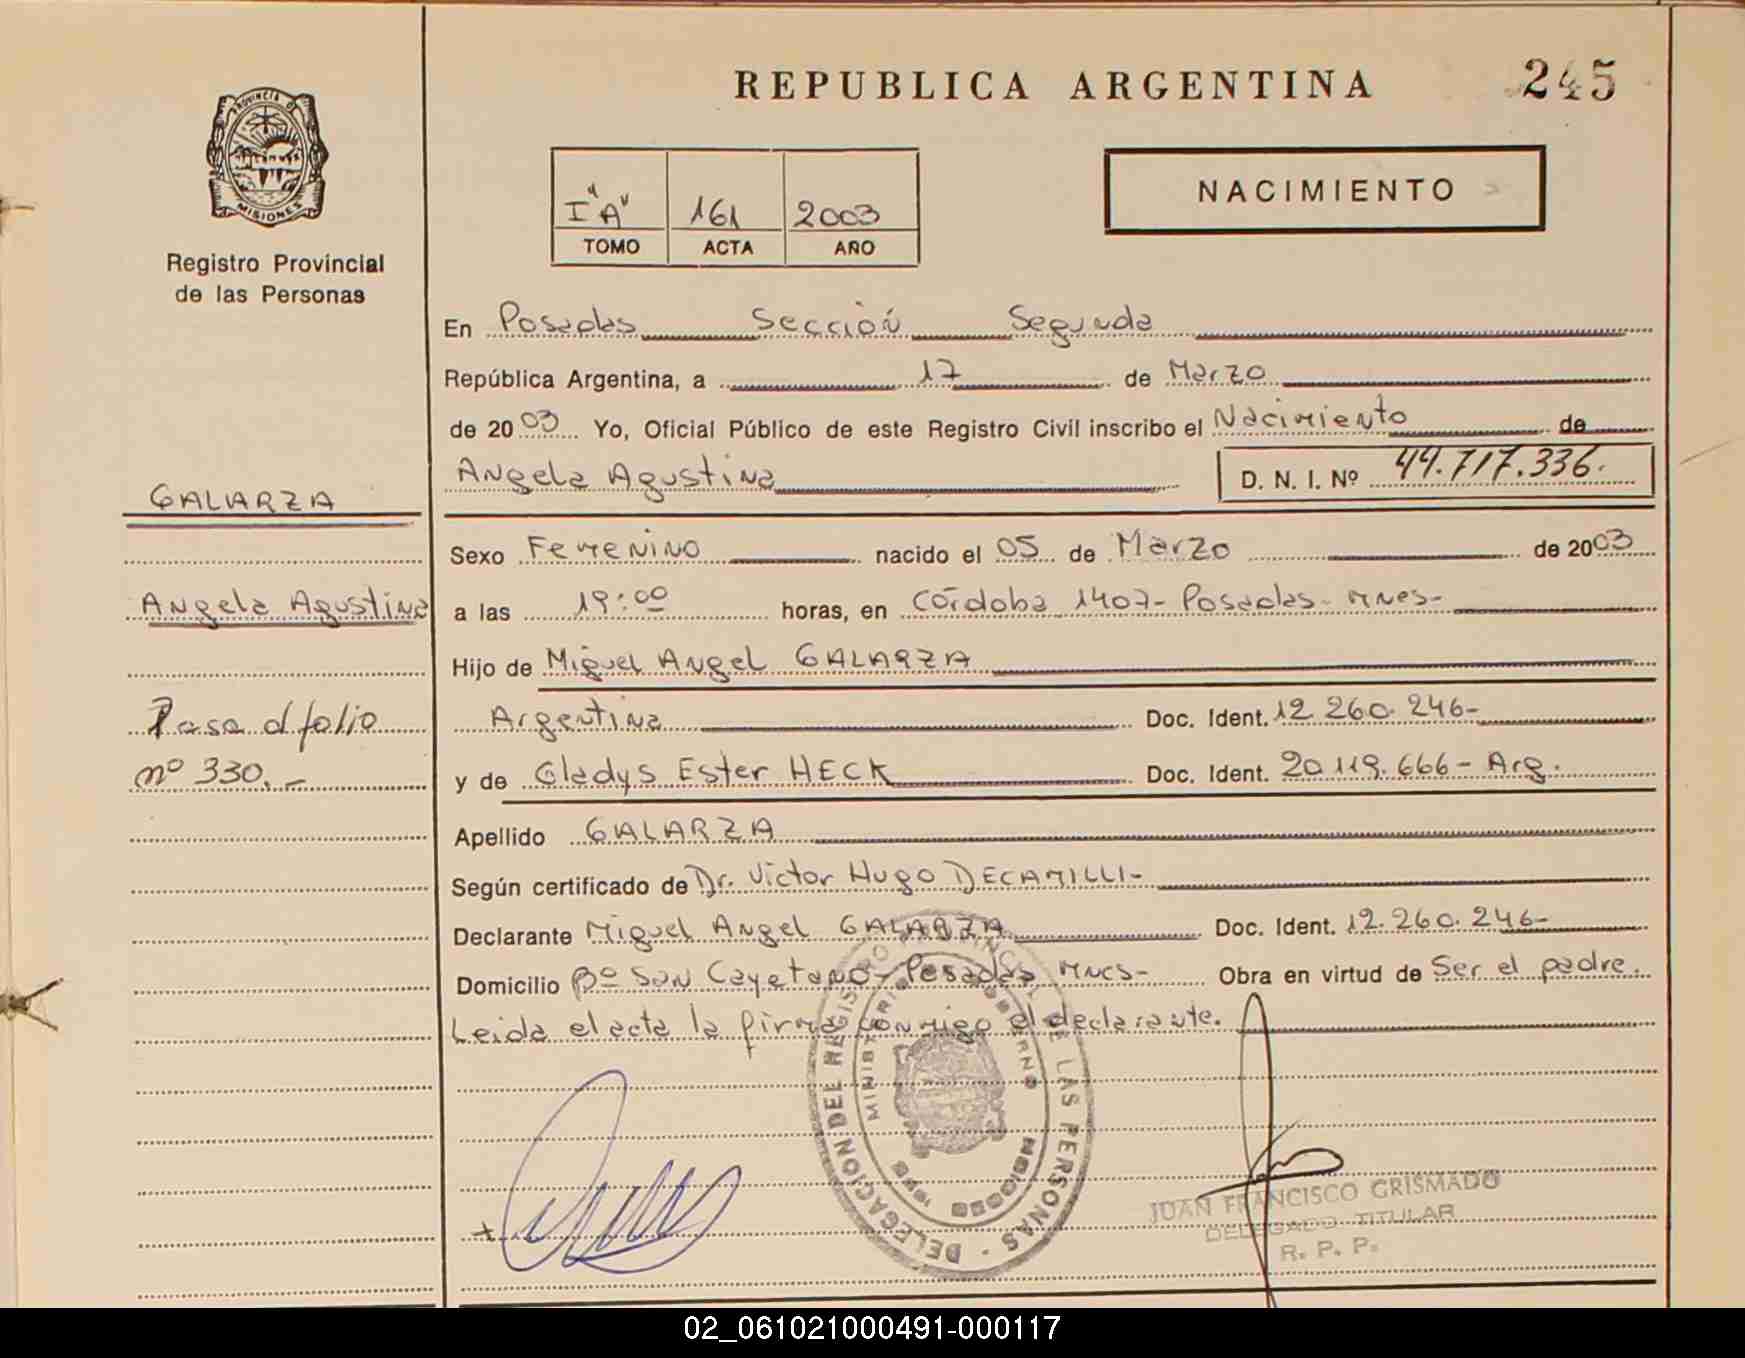 REPUBLICA ARGENTINA
245
PROVINCIA DE
MISIONES
Registro Provincial
de las Personas
I "A" 161 2003
TOMO ACTA AÑO
NACIMIENTO
En Posadas Sección Segunda
República Argentina, a 17 de Marzo
de 2003 Yo, Oficial Público de este Registro Civil inscribo el Nacimiento de
Angela Agustina D. N. I. Nº 44.717.336.
GALARZA
Sexo Femenino nacido el 05 de Marzo de 2003
Angela Agustina
a las 19:00 horas, en Córdoba 1407- Posadas- Mnes-
Hijo de Miguel Angel GALARZA
Pasa al folio
nº 330.-
Argentina Doc. Ident. 12.260.246-
y de Gladys Ester HECK Doc. Ident. 20.119.666- Arg.
Apellido GALARZA
Según certificado de Dr. Victor Hugo DECAMILLI-
Declarante Miguel Angel GALARZA Doc. Ident. 12.260.246-
Domicilio Bº San Cayetano- Posadas Mnes- Obra en virtud de Ser el padre.
Leida el acta la firma conmigo el declarante.
DELEGACION DEL REGISTRO PROVINCIAL DE LAS PERSONAS
MINISTERIO GOBIERNO
JUAN FRANCISCO GRISMADO
DELEGADO TITULAR
R. P. P.
02_061021000491-000117